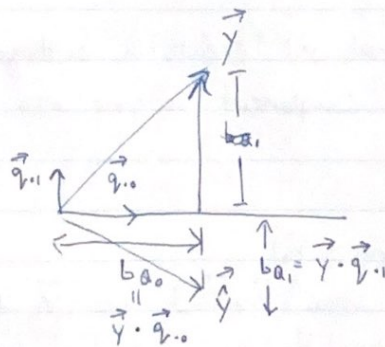 Y⃗
b_Q₁
q⃗.₁
q⃗.₀
b_Q₀
||
Y⃗ · q⃗.₀
Ŷ⃗
b_Q₁ = Y⃗ · q⃗.₁